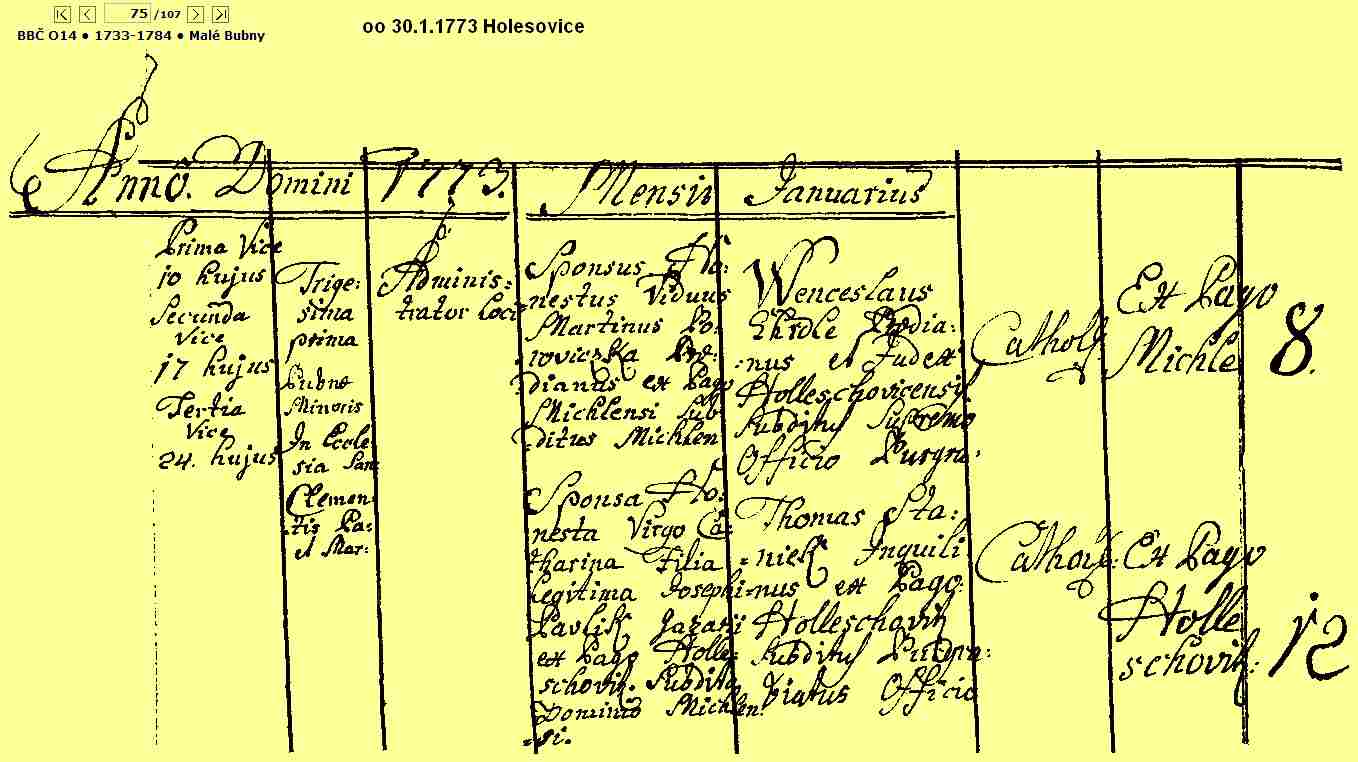 75 /107
BBČ O14 • 1733-1784 • Malé Bubny
oo 30.1.1773 Holesovice
Anno. Domini 1773. Mensis Januarius
Prima Vice
10 hujus
Secunda
Vice
17 hujus
Tertia
Vice
24. hujus
Trige:
sima
prima
Bubnæ
Minoris
In Eccle
sia San
Clemen:
tis Pa:
et Mar:
Adminis:
trator Loci
Sponsus Ho:
nestus Viduus
Martinus
dianus ex Pago
Michlensi Sub
ditus Michlen
Sponsa Ho:
nesta Virgo Ca:
tharina Filia
Legitima Josephi
Pavlik
ex Pago Holle:
schoviz. Subdita
Dominio Michlen:
si.
Wenceslaus
:nus et Judex
Holleschovicensis
Subditus Supremo
Officio Purgra:
Thomas Sta:
:niek Inquili
:nus ex Pago
Holleschoviz
Subditus Purgra:
viatus Officio
Cathol:
Cathol:
Ex Pago
Michle
8.
Ex Pago
Holle
schoviz:
12